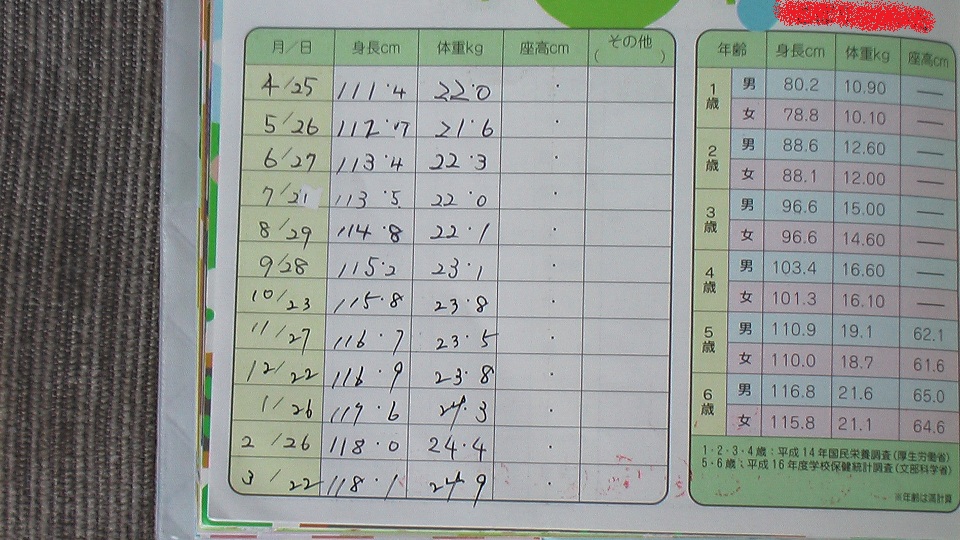 月/日 身長cm 体重kg 座高cm その他( )
4/25 111.4 22.0 .
5/26 112.7 21.6 .
6/27 113.4 22.3 .
7/21 113.5 22.0 .
8/29 114.8 22.1 .
9/28 115.2 23.1 .
10/23 115.8 23.8 .
11/27 116.7 23.5 .
12/22 116.9 23.8 .
1/26 117.6 24.3 .
2/26 118.0 24.4 .
3/22 118.1 24.9 .
年齢 身長cm 体重kg 座高cm
1歳 男 80.2 10.90 —
女 78.8 10.10 —
2歳 男 88.6 12.60 —
女 88.1 12.00 —
3歳 男 96.6 15.00 —
女 96.6 14.60 —
4歳 男 103.4 16.60 —
女 101.3 16.10 —
5歳 男 110.9 19.1 62.1
女 110.0 18.7 61.6
6歳 男 116.8 21.6 65.0
女 115.8 21.1 64.6
1・2・3・4歳:平成14年国民栄養調査(厚生労働省)
5・6歳:平成16年度学校保健統計調査(文部科学省)
※年齢は満計算